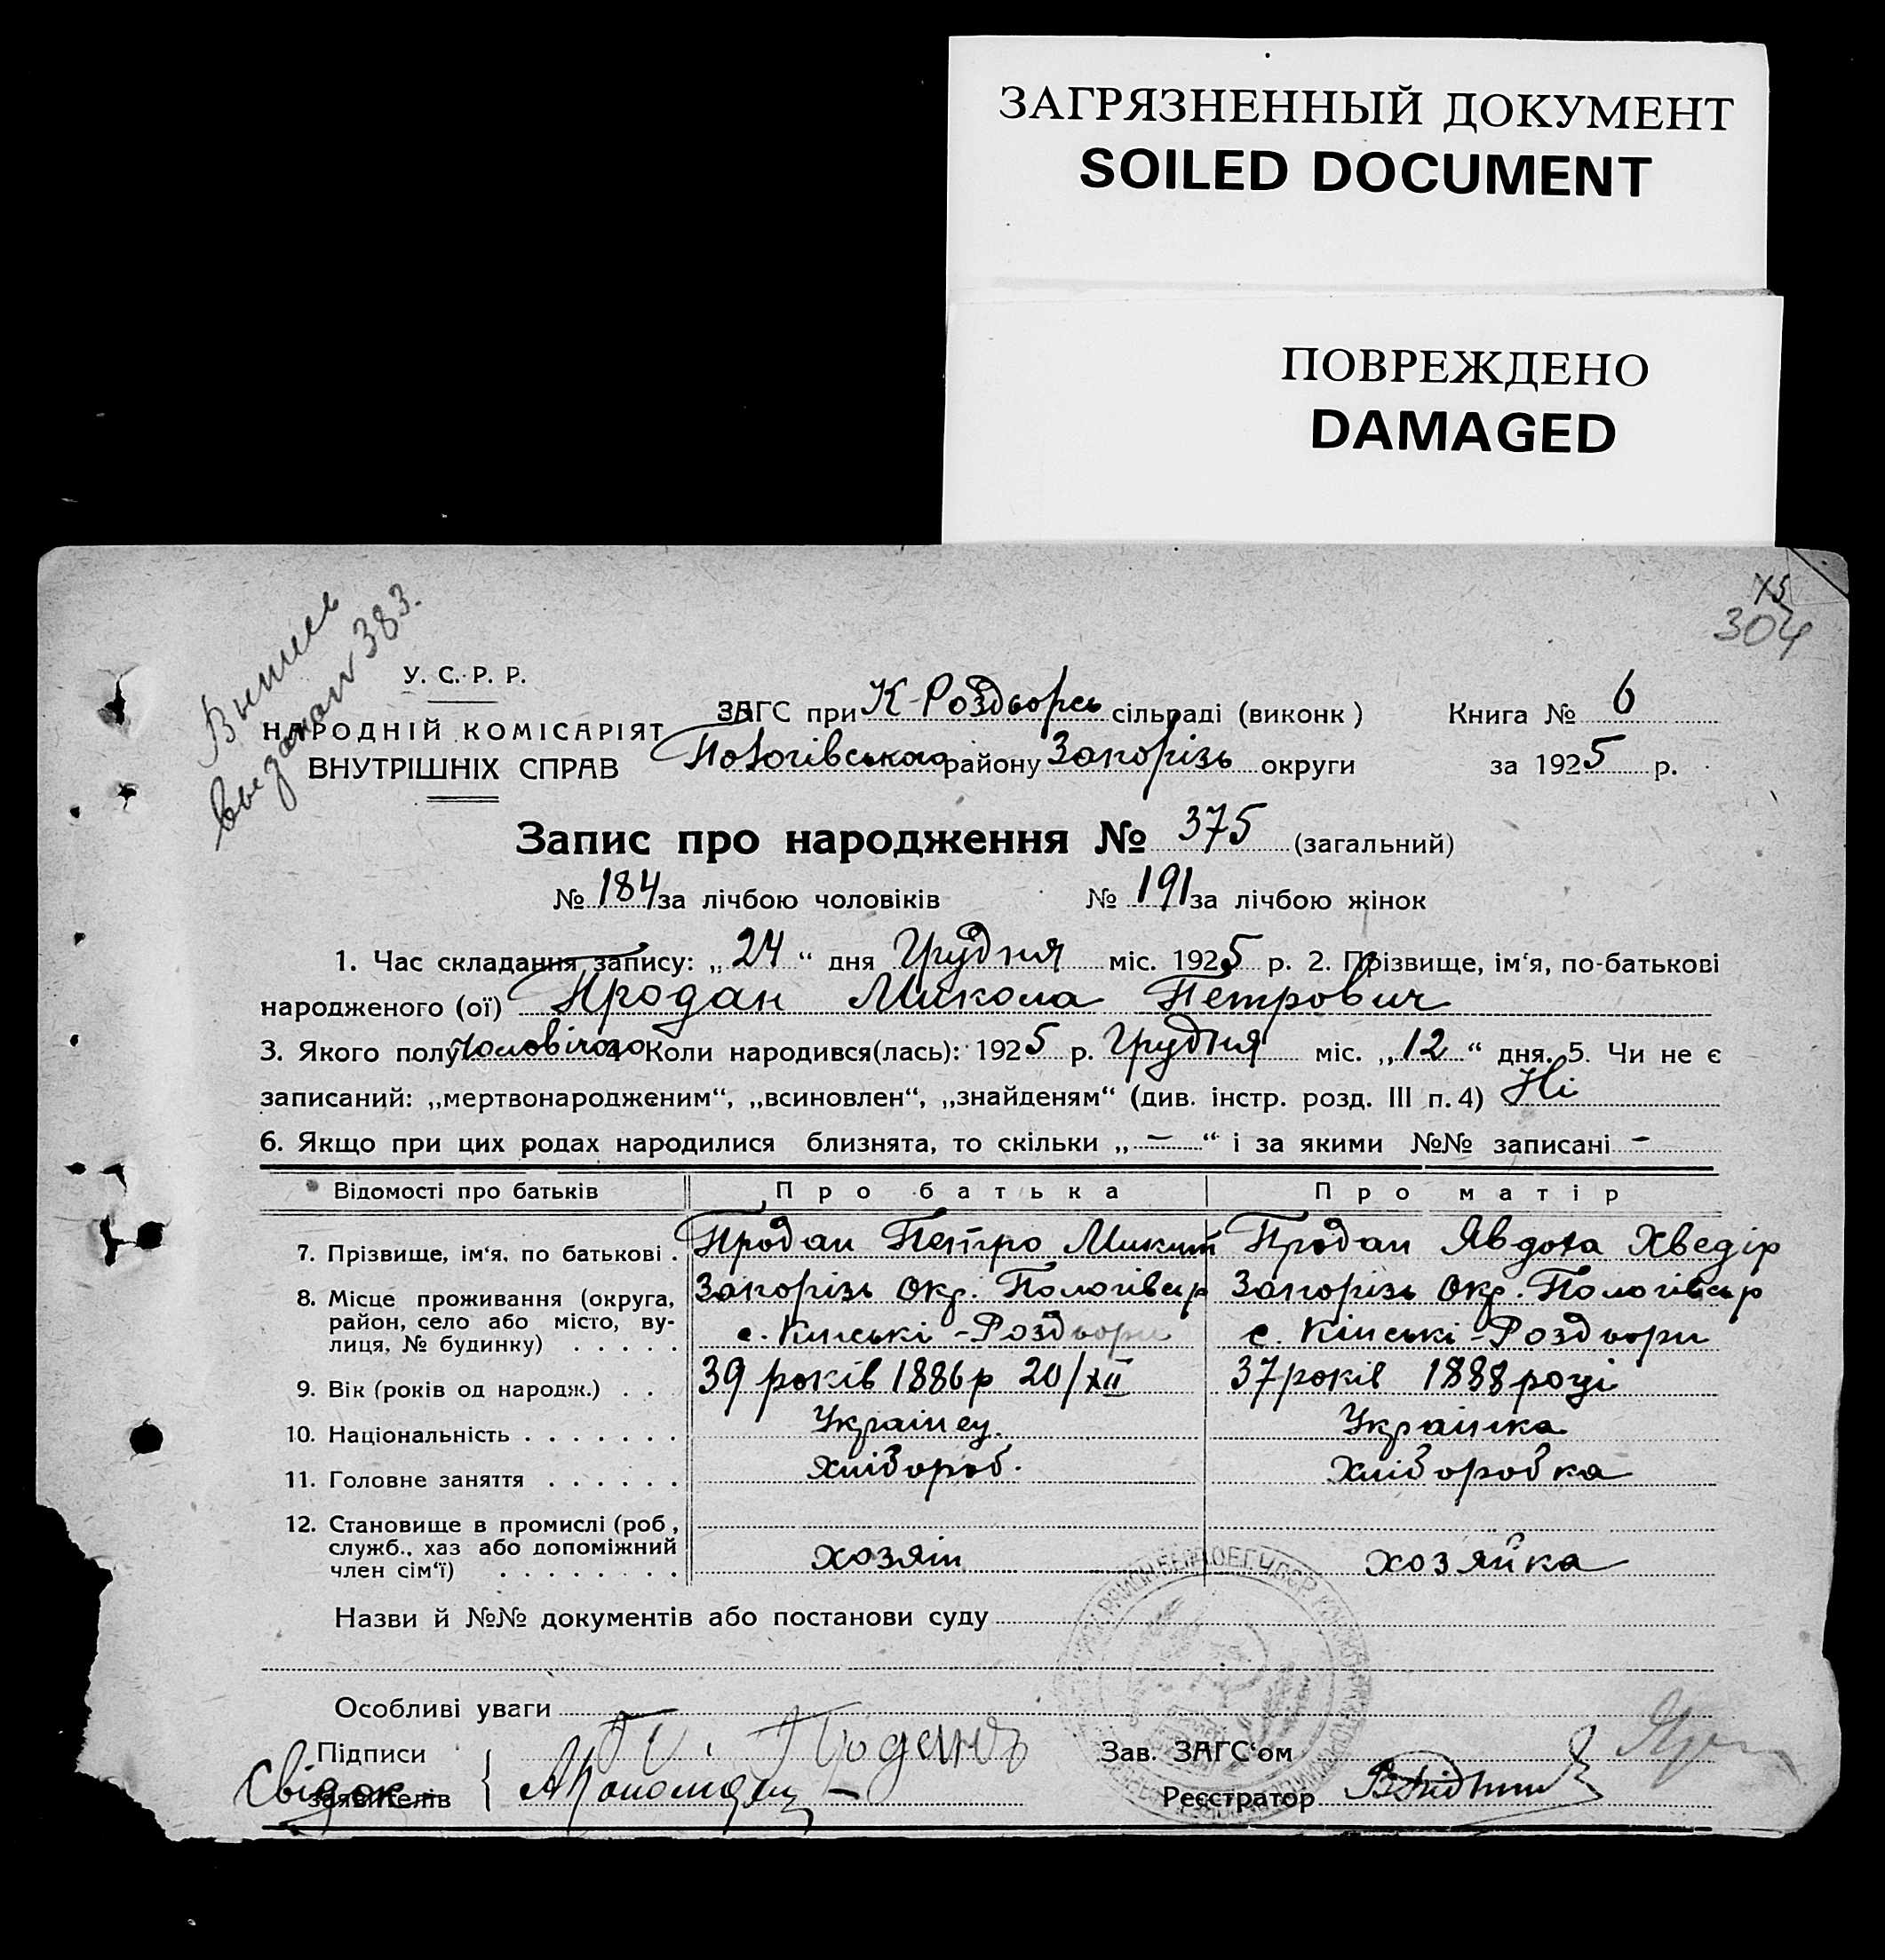 ЗАГРЯЗНЕННЫЙ ДОКУМЕНТ
SOILED DOCUMENT
ПОВРЕЖДЕНО
DAMAGED
304
Выпись
выдана 383.
У. С. Р. Р.
НАРОДНІЙ КОМІСАРІЯТ
ВНУТРІШНІХ СПРАВ
ЗАГС при К-Роздорсь сільраді (виконк) Книга № 6
Пологівського району Запорізь округи за 1925 р.
Запис про народження № 375 (загальний)
№ 184 за лічбою чоловіків № 191 за лічбою жінок
1. Час складання запису: „24“ дня Грудня міс. 1925 р. 2. Прізвище, ім‘я, по-батькові
народженого (ої) Продан Микола Петрович
3. Якого полу чоловічого 4. Коли народився(лась): 1925 р. Грудня міс. „12“ дня. 5. Чи не є
записаний: „мертвонародженим“, „всиновлен“, „знайденям“ (див. інстр. розд. III п. 4) Ні
6. Якщо при цих родах народилися близнята, то скільки „—“ і за якими №№ записані —
Відомості про батьків Про батька Про матір
7. Прізвище, ім‘я, по батькові . Продан Петро Микит Продан Явдоха Хведір
8. Місце проживання (округа, Запорізь окр. Пологівс р Запорізь окр. Пологівс р
район, село або місто, ву- с. Кінські-Роздори с. Кінські-Роздори
лиця, № будинку) . . . . .
9. Вік (років од народж.) . . 39 років 1886 р 20/XII 37 років 1888 році
10. Національність . . . . . . . Українец. Українка
11. Головне заняття . . . . . . Хлібороб. Хліборобка
12. Становище в промислі (роб,
служб., хаз або допоміжний хозяін хозяйка
член сім‘ї) . . . . . . . .
Назви й №№ документів або постанови суду
Особливі уваги
Підписи П. Проданъ Зав. ЗАГС‘ом
Свідок
заявителів Реєстратор